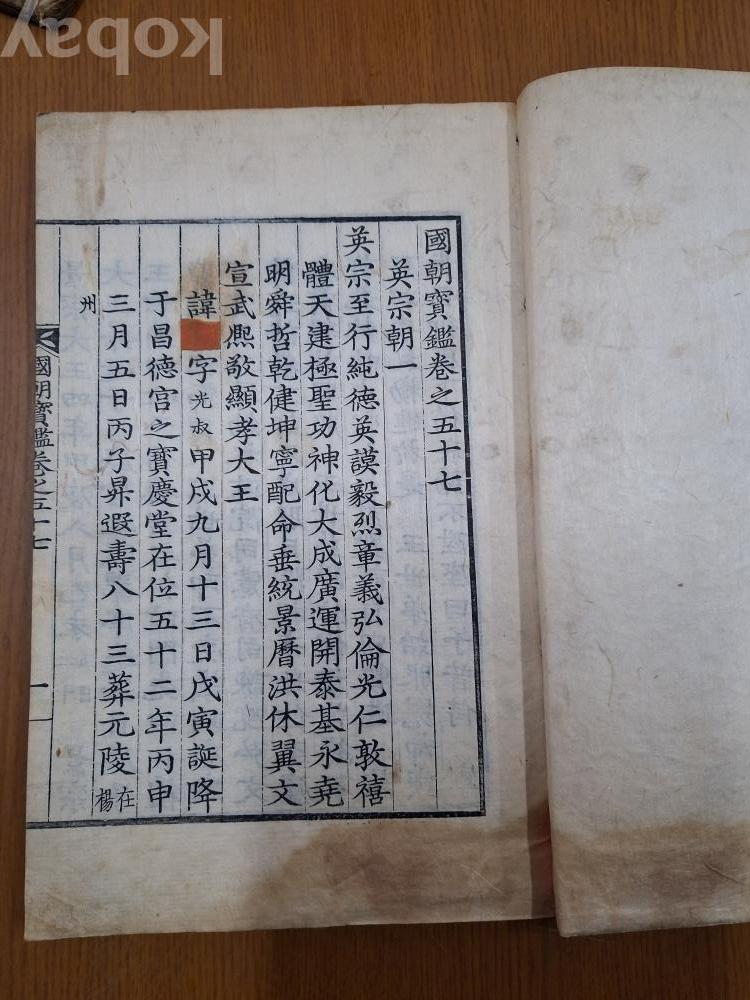 kobay
國朝寶鑑卷之五十七
英宗朝一
英宗至行純德英謨毅烈章義弘倫光仁敦禧
體天建極聖功神化大成廣運開泰基永堯
明舜哲乾健坤寧配命垂統景曆洪休翼文
宣武熙敬顯孝大王
諱 字光叔甲戌九月十三日戊寅誕降
于昌德宮之寶慶堂在位五十二年丙申
三月五日丙子昇遐壽八十三葬元陵在楊
州
國朝寶鑑卷之五十七 一